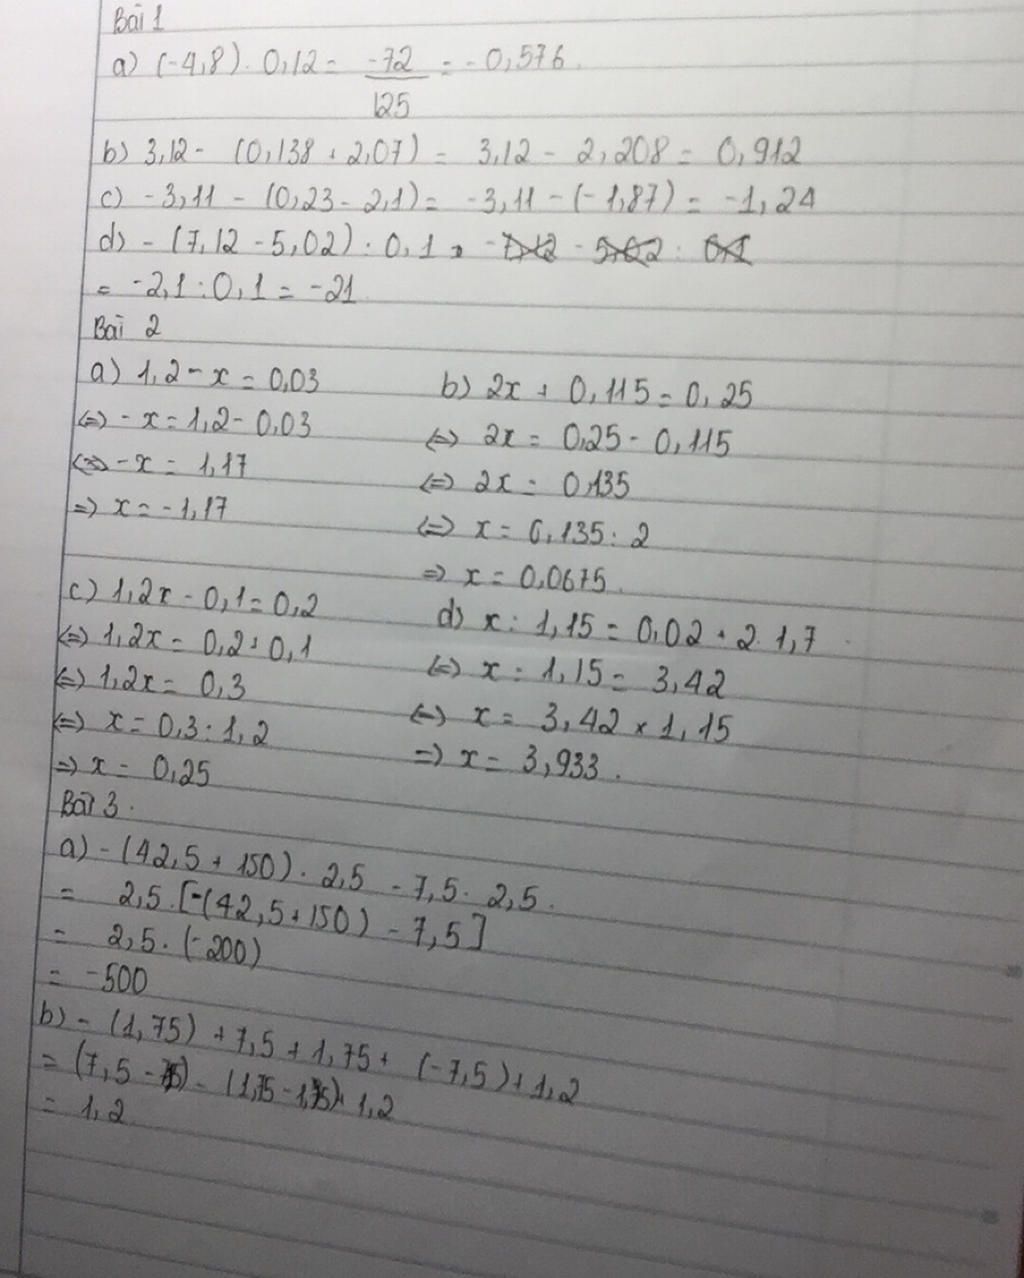 Bài 1
a) (-4,8) . 0,12 = -72/125 = -0,576.
b) 3,12 - (0,138 + 2,07) = 3,12 - 2,208 = 0,912
c) -3,11 - (0,23 - 2,1) = -3,11 - (-1,87) = -1,24
d) - (7,12 - 5,02) : 0,1 =
= -2,1 : 0,1 = -21
Bài 2
a) 1,2 - x = 0,03
<=> -x = 1,2 - 0,03
<=> -x = 1,17
=> x = -1,17
b) 2x + 0,115 = 0,25
<=> 2x = 0,25 - 0,115
<=> 2x = 0,135
<=> x = 0,135 : 2
=> x = 0,0675.
c) 1,2x - 0,1 = 0,2
<=> 1,2x = 0,2 + 0,1
<=> 1,2x = 0,3
<=> x = 0,3 : 1,2
=> x = 0,25
d) x : 1,15 = 0,02 + 2 . 1,7
<=> x : 1,15 = 3,42
<=> x = 3,42 x 1,15
=> x = 3,933.
Bài 3.
a) - (42,5 + 150) . 2,5 - 7,5 . 2,5.
= 2,5 . [-(42,5 + 150) - 7,5]
= 2,5 . (-200)
= -500
b) - (1,75) + 7,5 + 1,75 + (-7,5) + 1,2
= (7,5 - 7,5) - (1,75 - 1,75) + 1,2
= 1,2